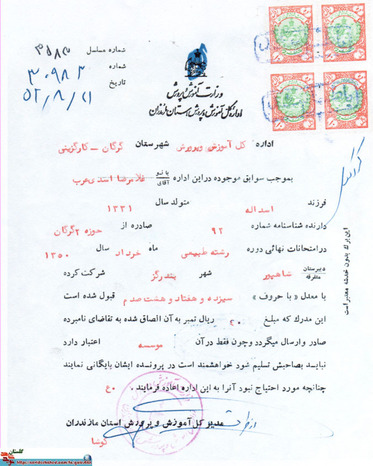 شماره مسلسل
شماره ۳۰۹۸۲
تاریخ ۵۲/۸/۲۱
وزارت آموزش و پرورش
اداره کل آموزش و پرورش استان مازندران
اداره کل آموزش و پرورش شهرستان گرگان - کارگزینی
بموجب سوابق موجوده در این اداره بانو آقای غلامرضا اسدی عرب
فرزند اسداله متولد سال ۱۳۳۱
دارنده شناسنامه شماره ۹۲ صادره از حوزه ۲ گرگان
در امتحانات نهائی دوره رشته طبیعی ماه خرداد سال ۱۳۵۰
دبیرستان متفرقه شاهپور شهر بندرگز شرکت کرده
با معدل « با حروف » سیزده و هفتاد و هشت صدم قبول شده است
این مدرک که مبلغ ۲۰ ریال تمبر به آن الصاق شده به تقاضای نامبرده
صادر و ارسال میگردد و چون فقط در آن موسسه اعتبار دارد
نباید بصاحبش تسلیم شود خواهشمند است در پرونده ایشان بایگانی نمایند
چنانچه مورد احتیاج نبود آنرا به این اداره اعاده فرمایند
مدیر کل آموزش و پرورش استان مازندران
این برگ بدون خدشه معتبر است